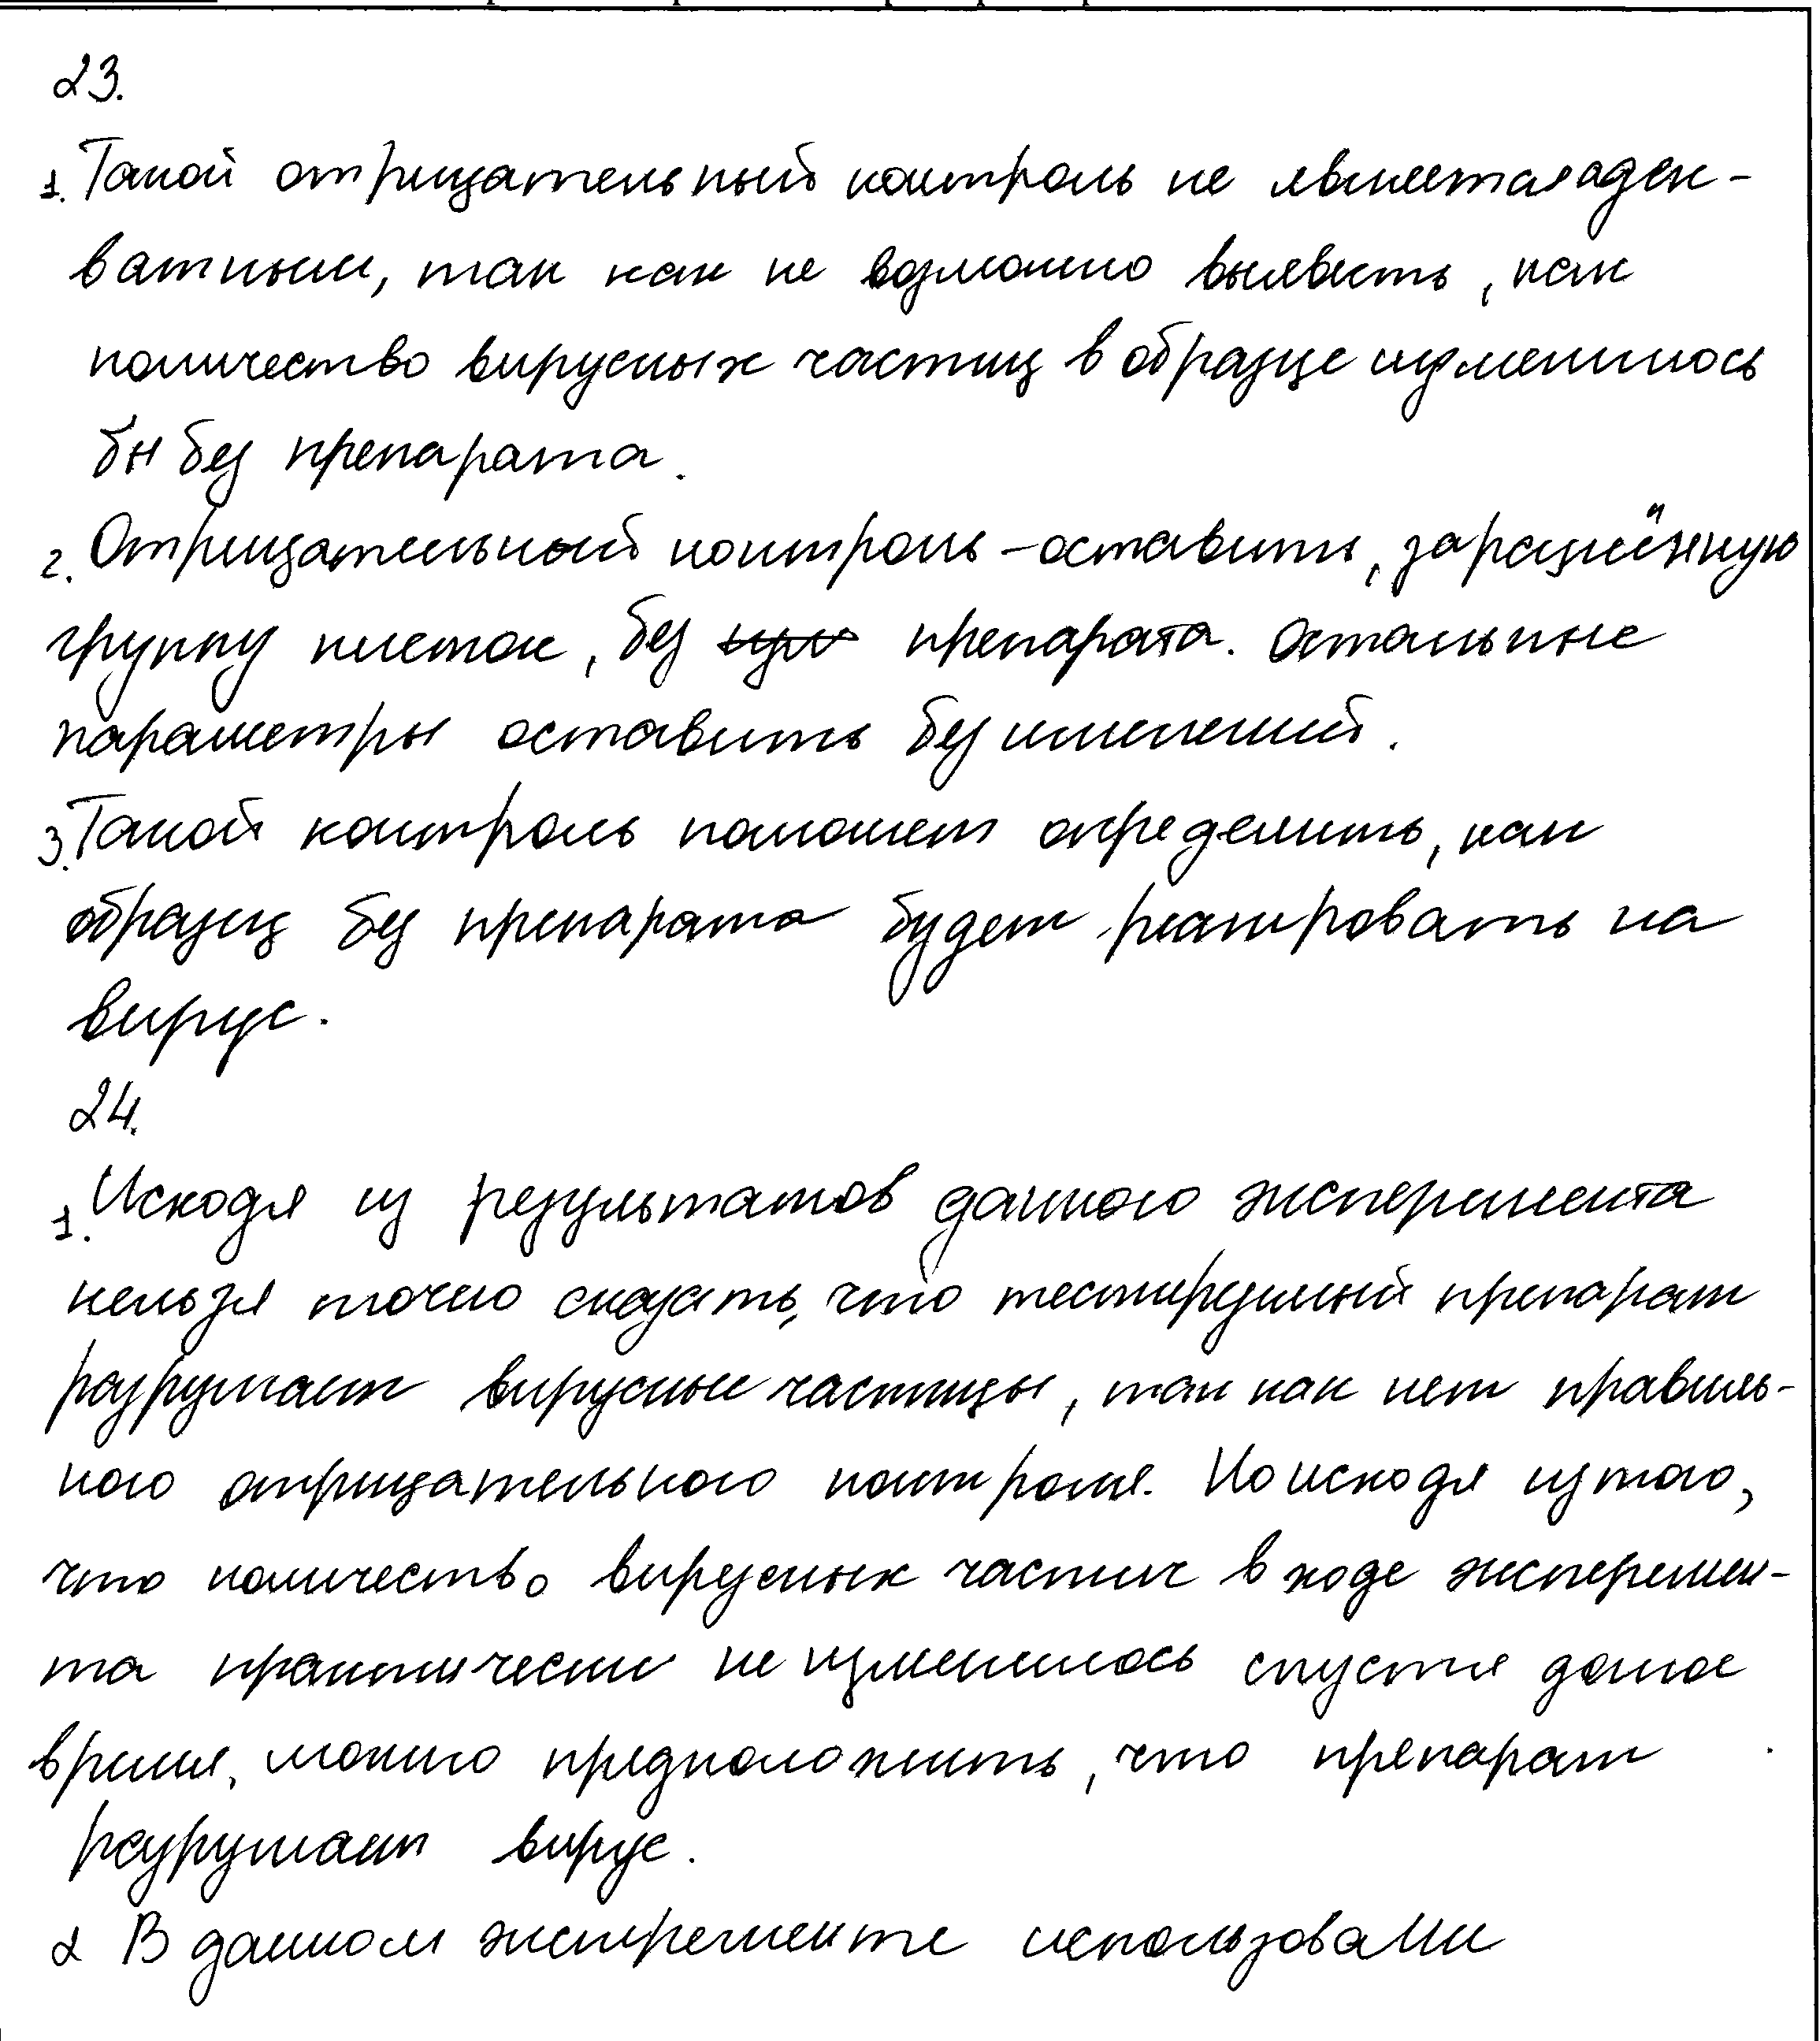 23.
1. Такой отрицательный контроль не является адек-
ватным, так как не возможно выявить, как
количество вирусных частиц в образце изменилось
бы без препарата.
2. Отрицательный контроль - оставить, заражённую
группу клеток, без препарата. Остальные
параметры оставить без изменений.
3. Такой контроль поможет определить, как
образец без препарата будет реагировать на
вирус.
24.
1. Исходя из результатов данного эксперемента
нельзя точно сказать, что тестируемый препарат
разрушает вирусные частицы, так как нет правиль-
ного отрицательного контроля. Но исходя из того,
что количество вирусных частиц в ходе эксперемен-
та практически не изменилось спустя долгое
время, можно предположить, что препарат
разрушает вирус.
2 В данном эксперементе использовали